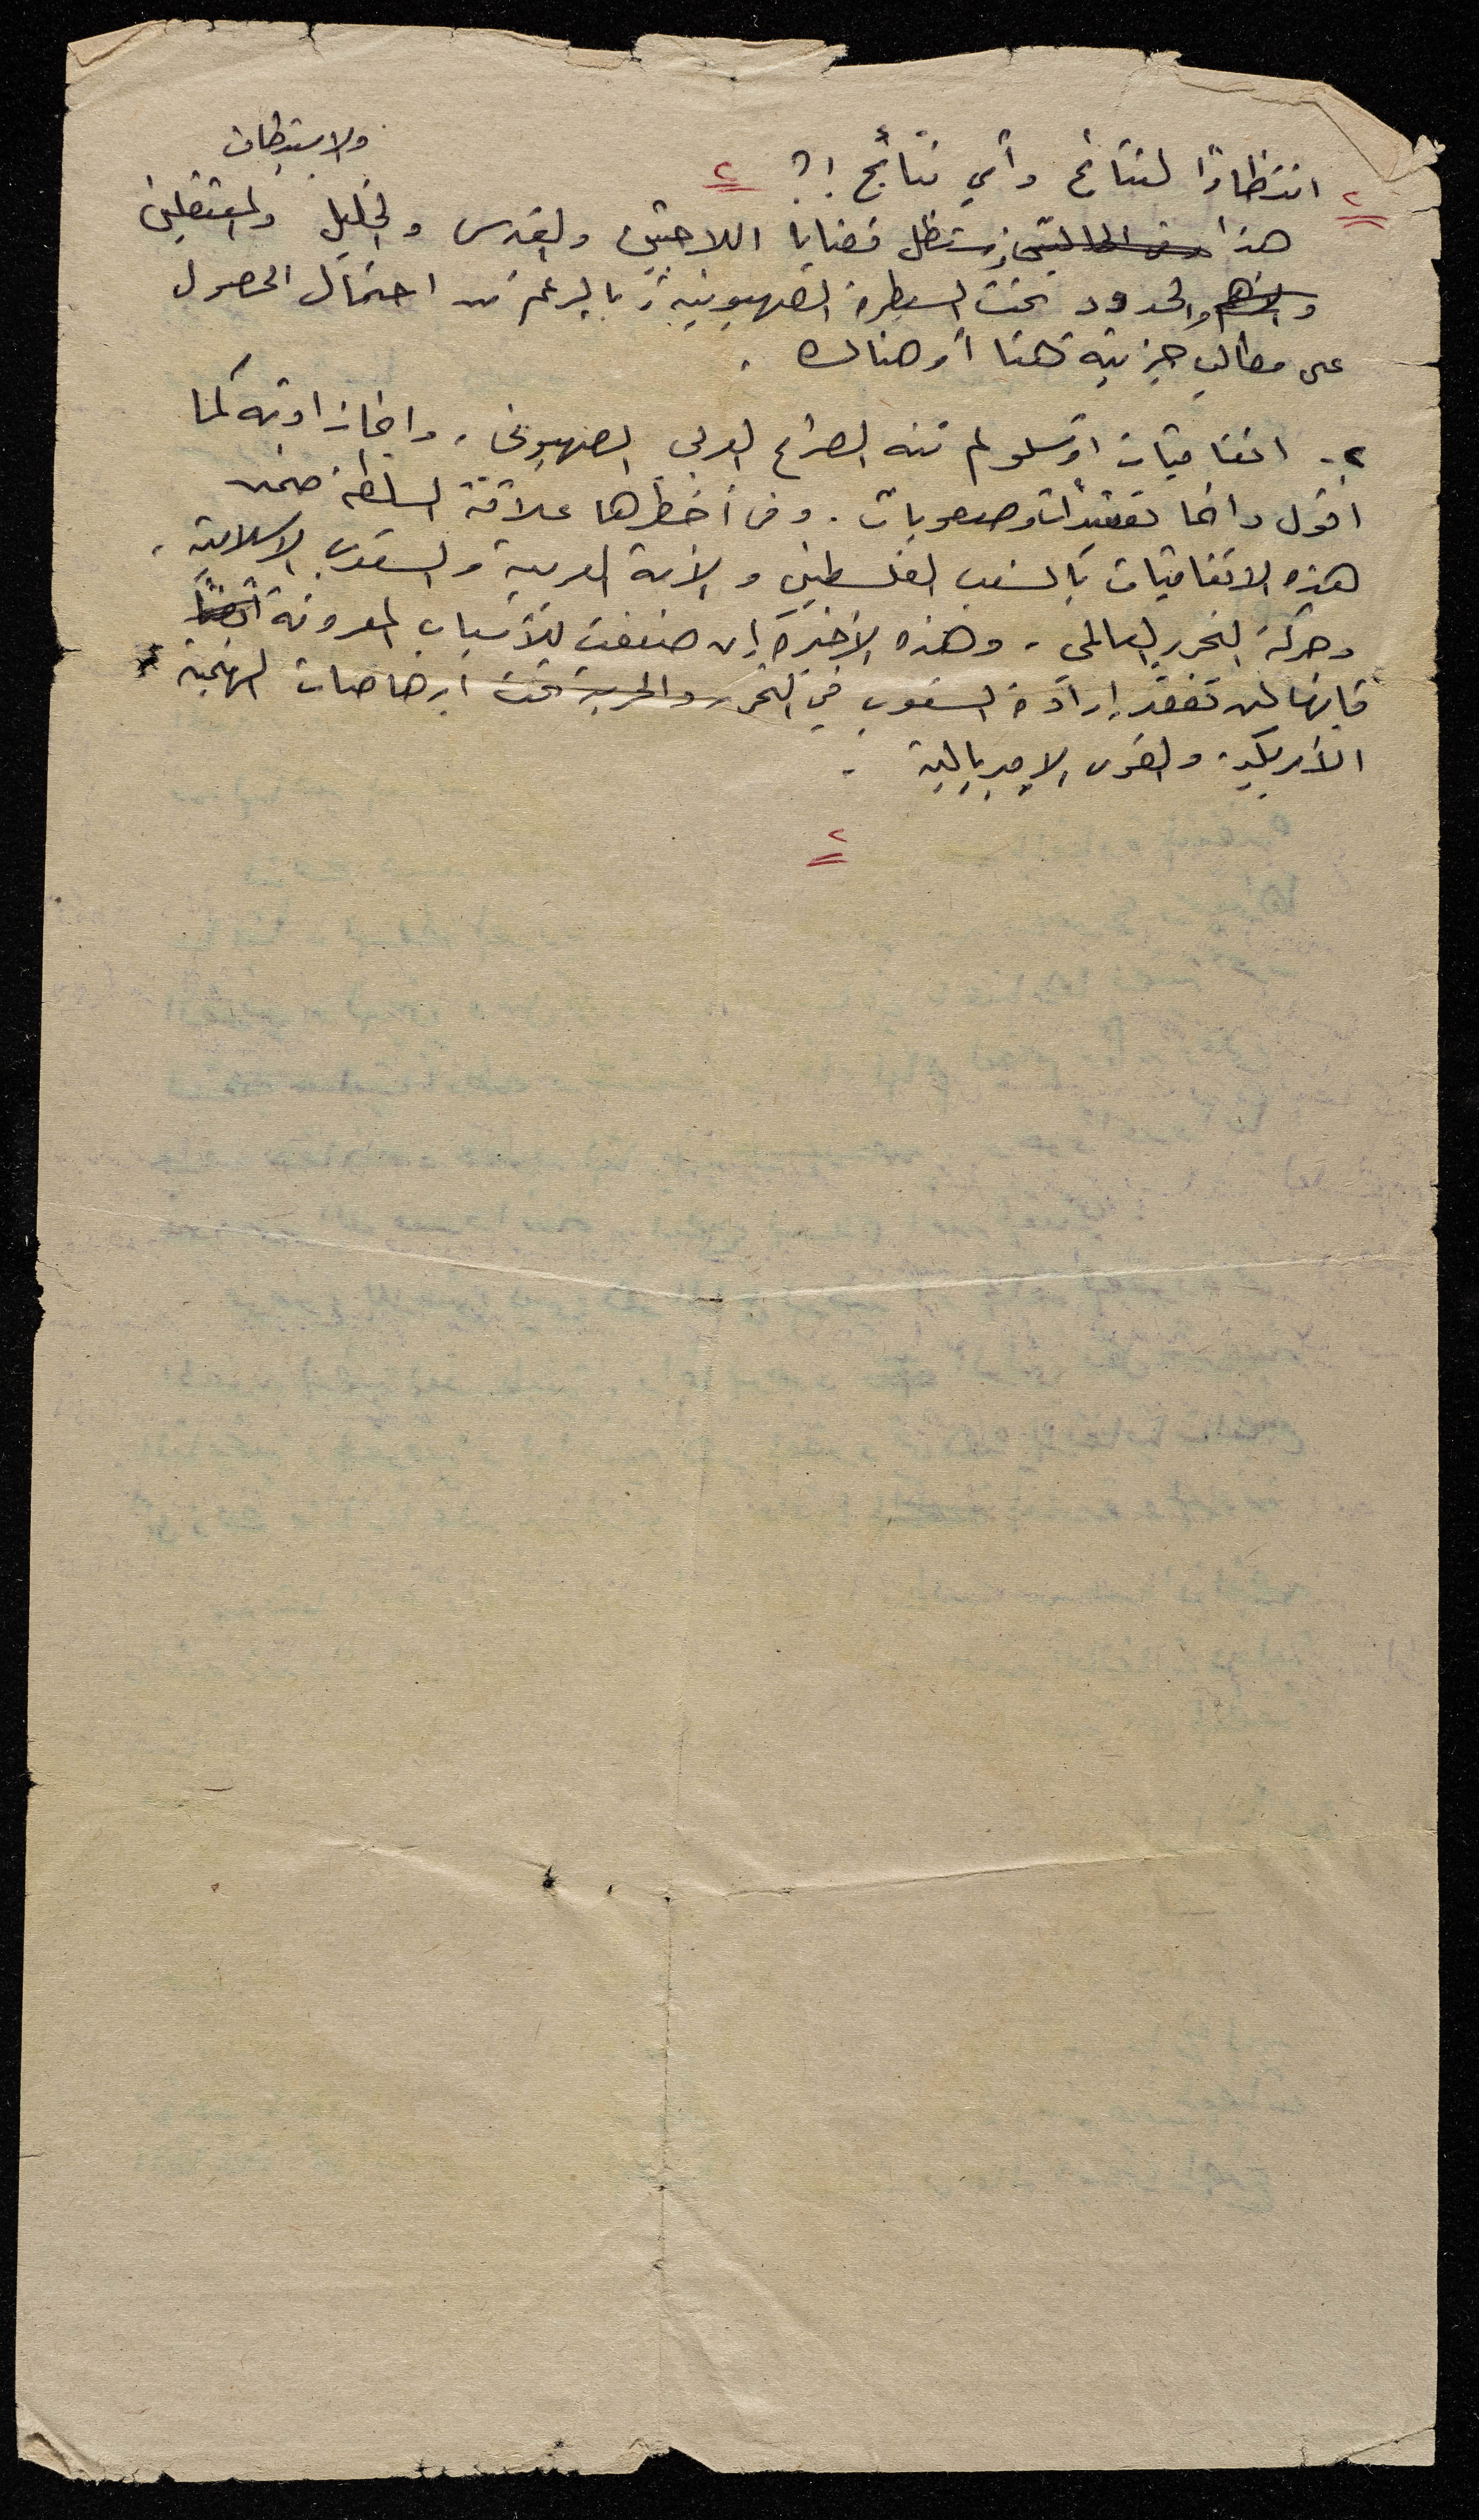 والاستيطان
٢ انتظارًا لنتائج وأي نتائج !؟ ٢
هذا وستظل قضايا اللاجئين والقدس والخليل والمعتقلين
والحدود تحت السيطرة الصهيونية، بالرغم من احتمال الحصول
على مطالب جزئية هنا أو هناك .
٢ - اتفاقيات اوسلو لم تنه الصراع العربي الصهيوني، وانما زادته كما
اقول دائما تعقيدات وصعوبات . ومن أخطرها علاقة السلطة ضمن
هذه الاتفاقيات بالشعب الفلسطيني والأمة العربية والشعوب الاسلامية،
وحركة التحرر العالمي، وهذه الأخيرة إن ضعفت للأسباب المعروفة أيضًا
فإنها لن تفقد إرادة الشعوب في التحرر والحرية تحت ارهاصات الهجمة
الأمريكية والقوى الإمبريالية .
٢